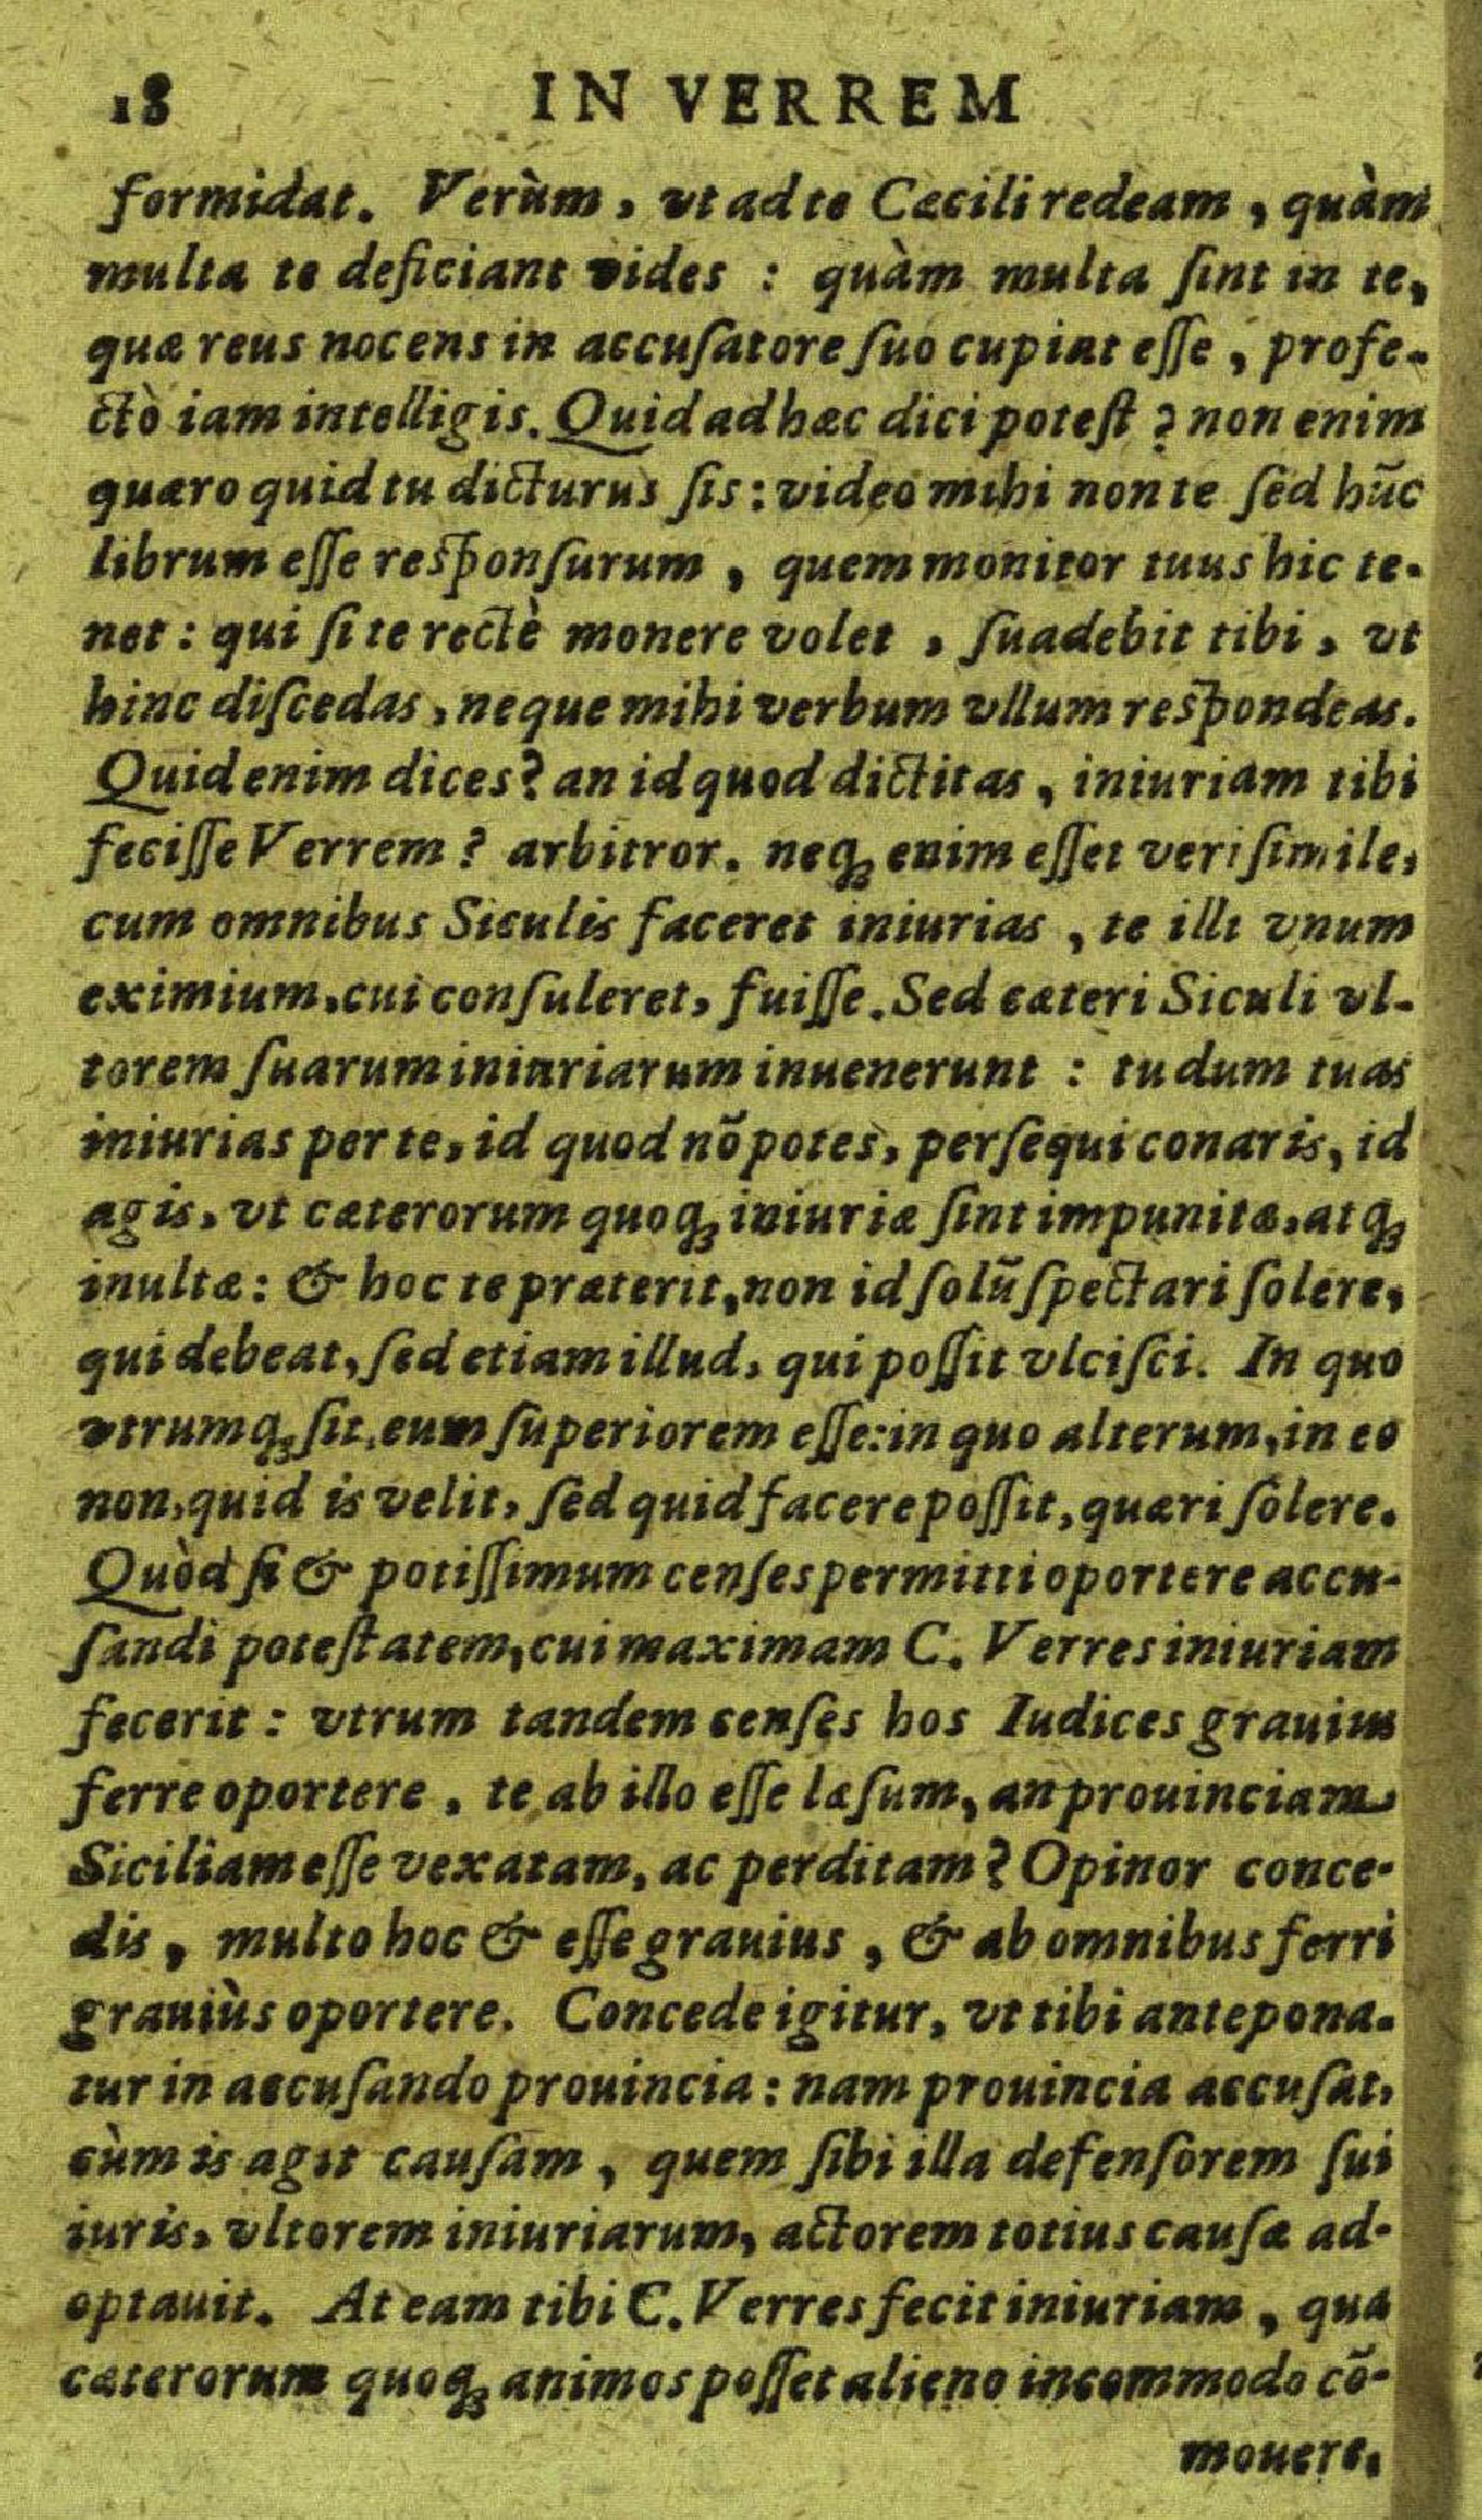 18 IN VERREM
formidat. Verùm, vt ad te Cæcili redeam, quàm
multa te deficiant vides : quàm multa ſint in te,
quæ reus nocens in accuſatore ſuo cupiat eſſe, profe-
ctò iam intelligis. Quid ad hæc dici poteſt ? non enim
quæro quid tu dicturus ſis : video mihi non te ſed hũc
librum eſſe reſponſurum, quem monitor tuus hic te-
net : qui ſi te rectè monere volet, ſuadebit tibi, vt
hinc diſcedas, neque mihi verbum vllum reſpondeas.
Quid enim dices? an id quod dictitas, iniuriam tibi
feciſſe Verrem ? arbitror. neq; enim eſſet veriſimile,
cum omnibus Siculis faceret iniurias, te illi vnum
eximium, cui conſuleret, fuiſſe. Sed cæteri Siculi vl-
torem ſuarum iniuriarum inuenerunt : tu dum tuas
iniurias per te, id quod nõ potes, perſequi conaris, id
agis, vt cæterorum quoq; iniuriæ ſint impunitæ, atq;
inultæ : & hoc te præterit, non id ſolũ ſpectari ſolere,
qui debeat, ſed etiam illud, qui poſſit vlciſci. In quo
vtrumq; ſit, eum ſuperiorem eſſe: in quo alterum, in eo
non, quid is velit, ſed quid facere poſſit, quæri ſolere.
Quòd ſi & potiſſimum cenſes permitti oportere accu-
ſandi poteſtatem, cui maximam C. Verres iniuriam
fecerit : vtrum tandem cenſes hos Iudices grauius
ferre oportere, te ab illo eſſe læſum, an prouinciam
Siciliam eſſe vexatam, ac perditam? Opinor conce-
dis, multo hoc & eſſe grauius, & ab omnibus ferri
grauiùs oportere. Concede igitur, vt tibi antepona-
tur in accuſando prouincia : nam prouincia accuſat,
cùm is agit cauſam, quem ſibi illa defenſorem ſui
iuris, vltorem iniuriarum, actorem totius cauſæ ad-
optauit. At eam tibi C. Verres fecit iniuriam, qua
cæterorum quoq; animos poſſet alieno incommodo cõ-
mouere.